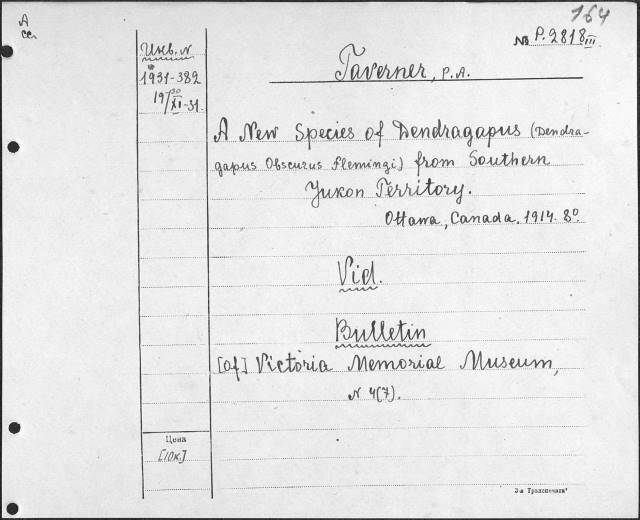 A
ce.
164
№ P.2818 III
Инв. N
1931-382
19 30/XI-31
Taverner, P.A.
A New Species of Dendragapus (Dendra-
gapus Obscurus Flemingi) from Southern
Yukon Territory.
Ottawa, Canada. 1914. 8°.
Vid.
Bulletin
[of] Victoria Memorial Museum,
N 4(7).
Цена
[10к.]
3-я Транспечать